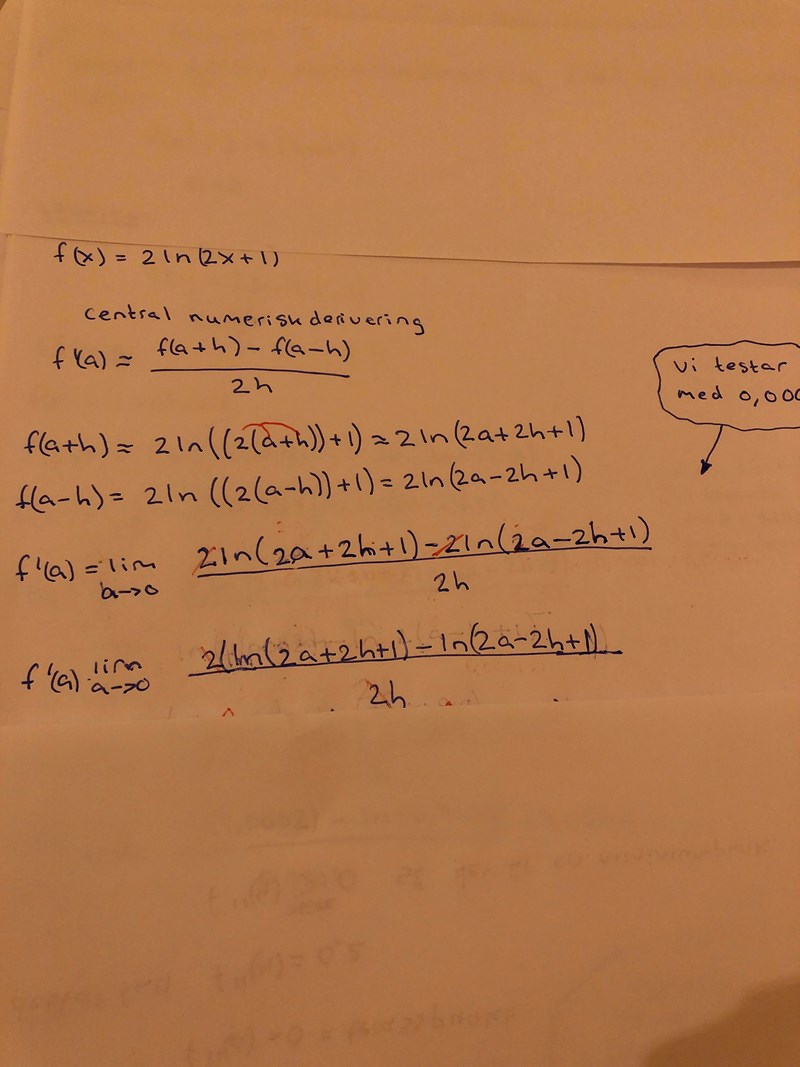 f(x) = 2 ln(2x+1)
central numerisk derivering
f'(a) ≈ f(a+h) - f(a-h) / 2h
vi testar
med 0,000
f(a+h) ≈ 2 ln((2(a+h))+1) ≈ 2 ln(2a+2h+1)
f(a-h) = 2 ln((2(a-h))+1) = 2 ln(2a-2h+1)
f'(a) = lim a→0 2 ln(2a+2h+1) - 2 ln(2a-2h+1) / 2h
f'(a) lim a→0 2(ln(2a+2h+1) - ln(2a-2h+1) / 2h